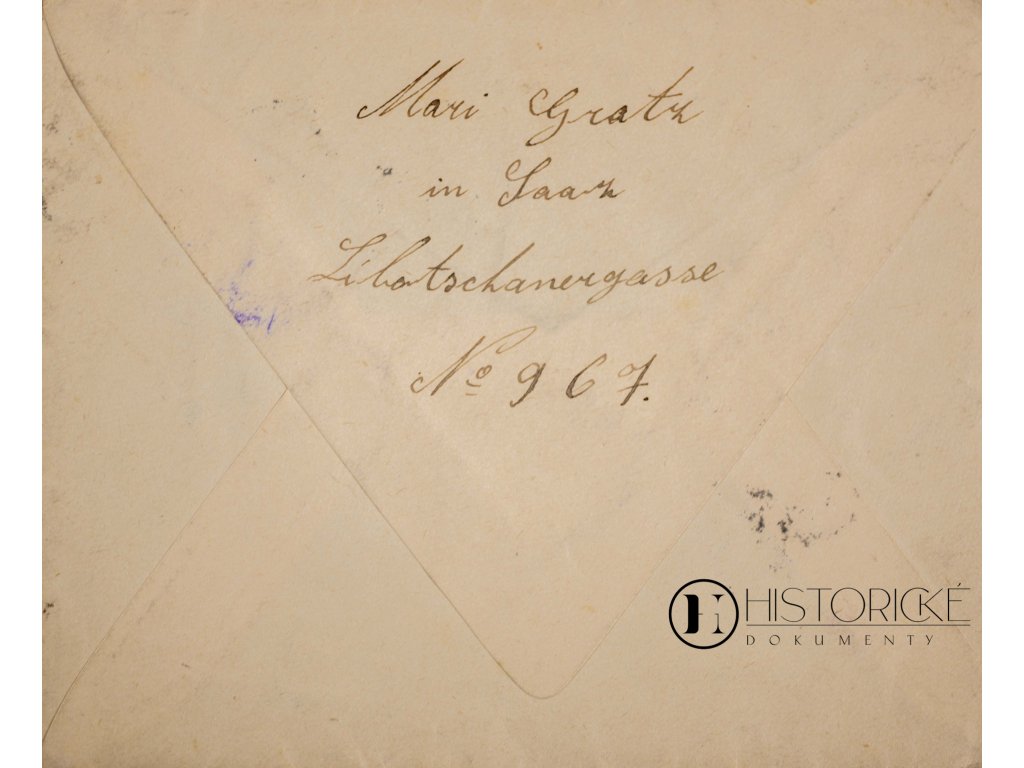 Mari Gratz
in Saaz
Libotschanergasse
No 967.
HISTORICKÉ
DOKUMENTY